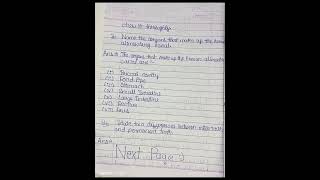 chew it thoroughly.
3. Name the organs that make up the human
alimentary canal.
Ans:- The organs that make up the human alimentary
canal are:-
(i) Buccal cavity
(ii) Food Pipe
(iii) Stomach
(iv) Small Intestine
(v) Large Intestine
(vi) Rectum
(vii) Anus
4. State two differences between
and permanent teeth.
Ans:-
Next Page